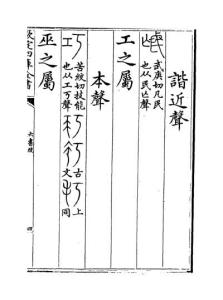 諧近聲
武庚切凡民
也从民亡聲
工之屬
本聲
苦絞切技能
也从工丂聲
古文
上同
巫之屬
欽定四庫全書
六書統